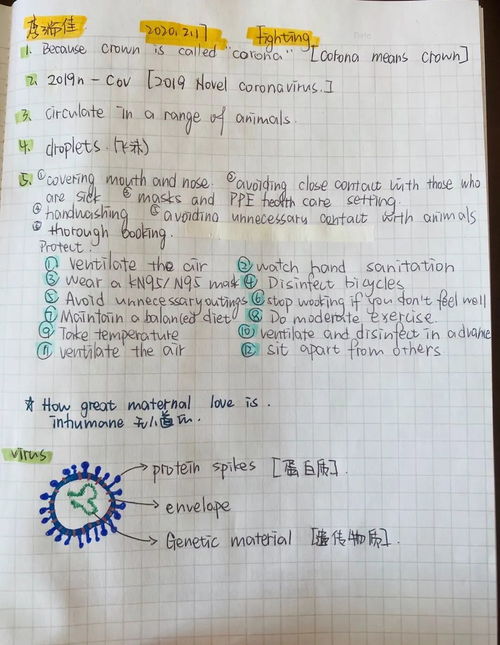 2020.2.17 fighting
1. Because crown is called "corona" [Corona means crown]
2. 2019n-Cov [2019 Novel coronavirus.]
3. circulate in a range of animals.
4. droplets. (飞沫)
5. ①covering mouth and nose. ②avoiding close contact with those who
are sick ③ masks and PPE health care setting.
④ handwashing ⑤ avoiding unnecessary contact with animals
⑥ thorough cooking.
Protect:
① Ventilate the air ② watch hand sanitation
③ wear a KN95/N95 mask ④ Disinfect bicycles
⑤ Avoid unnecessary outings ⑥ stop working if you don't feel well
⑦ Maintain a balanced diet ⑧ Do moderate exercise.
⑨ Take temperature ⑩ ventilate and disinfect in advance
⑪ ventilate the air ⑫ sit apart from others
☆ How great maternal love is.
inhumane
virus
protein spikes [蛋白质].
envelope
Genetic material [遗传物质].